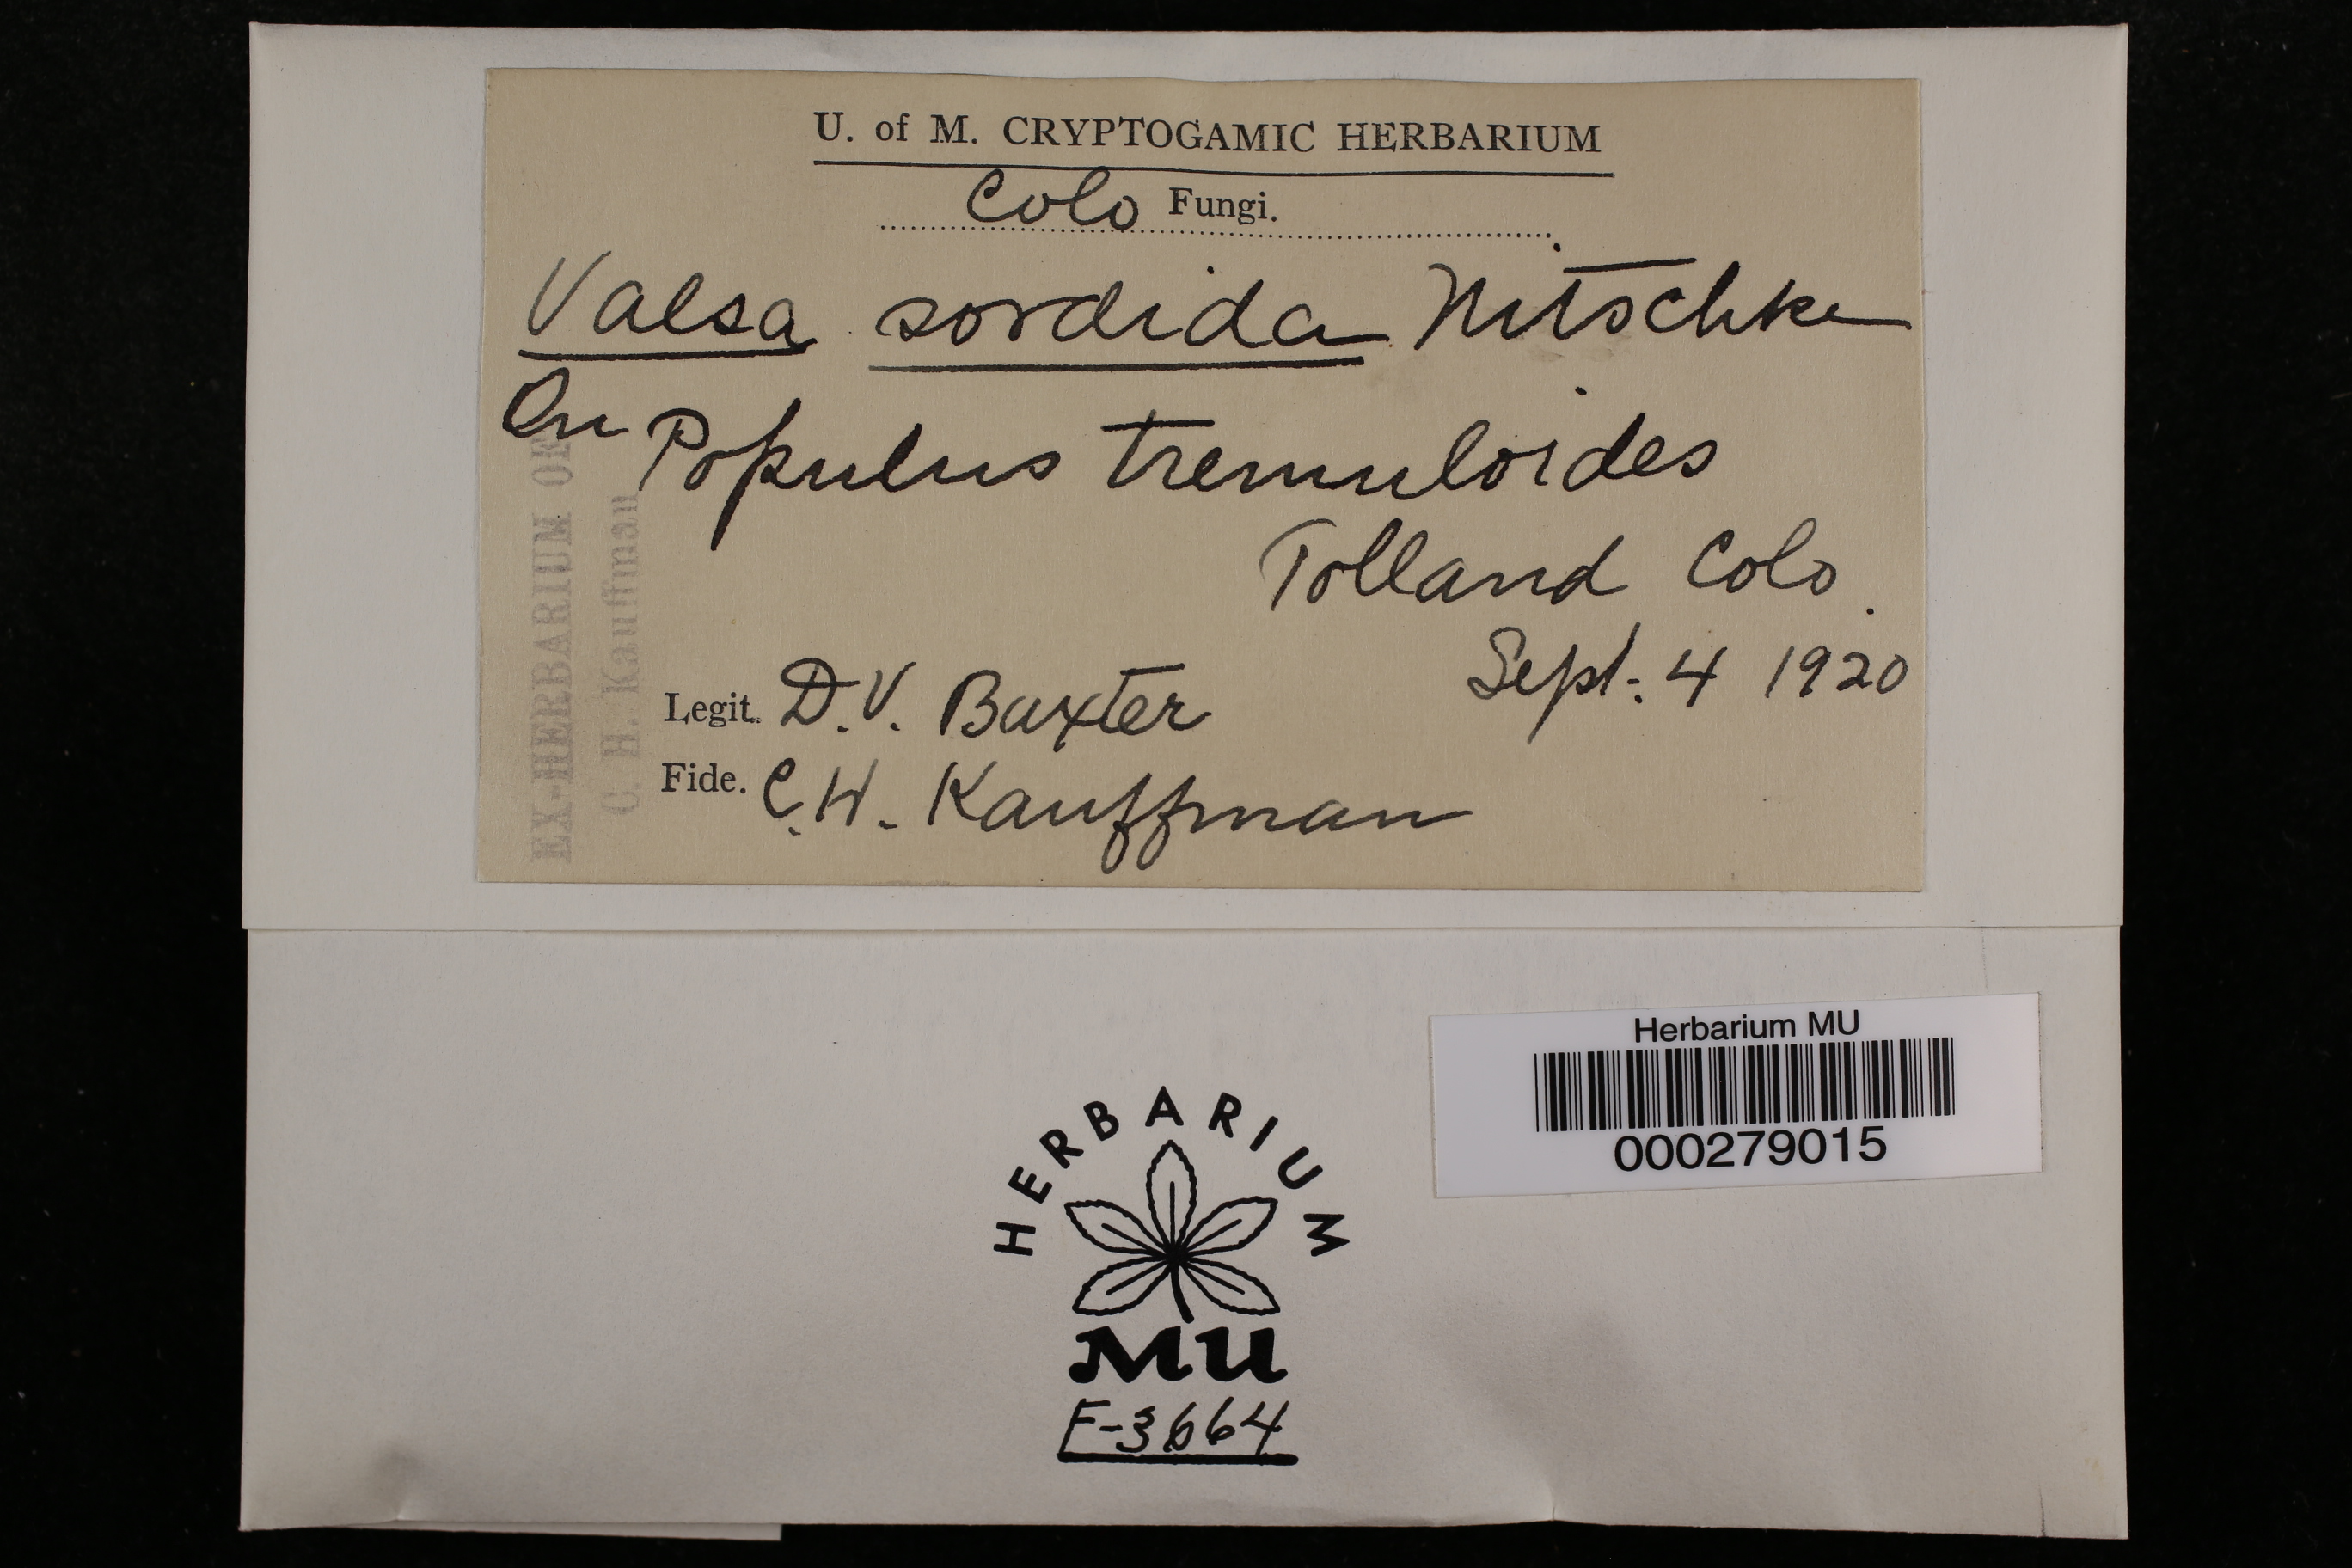 U. of M. CRYPTOGAMIC HERBARIUM
Colo Fungi.
Valsa sordida Nitschke
On Populus tremuloides
Tolland Colo.
Sept. 4 1920
Legit. D. V. Baxter
Fide. C. H. Kauffman
EX-HERBARIUM OF
C. H. Kauffman
Herbarium MU
000279015
HERBARIUM
MU
F-3664